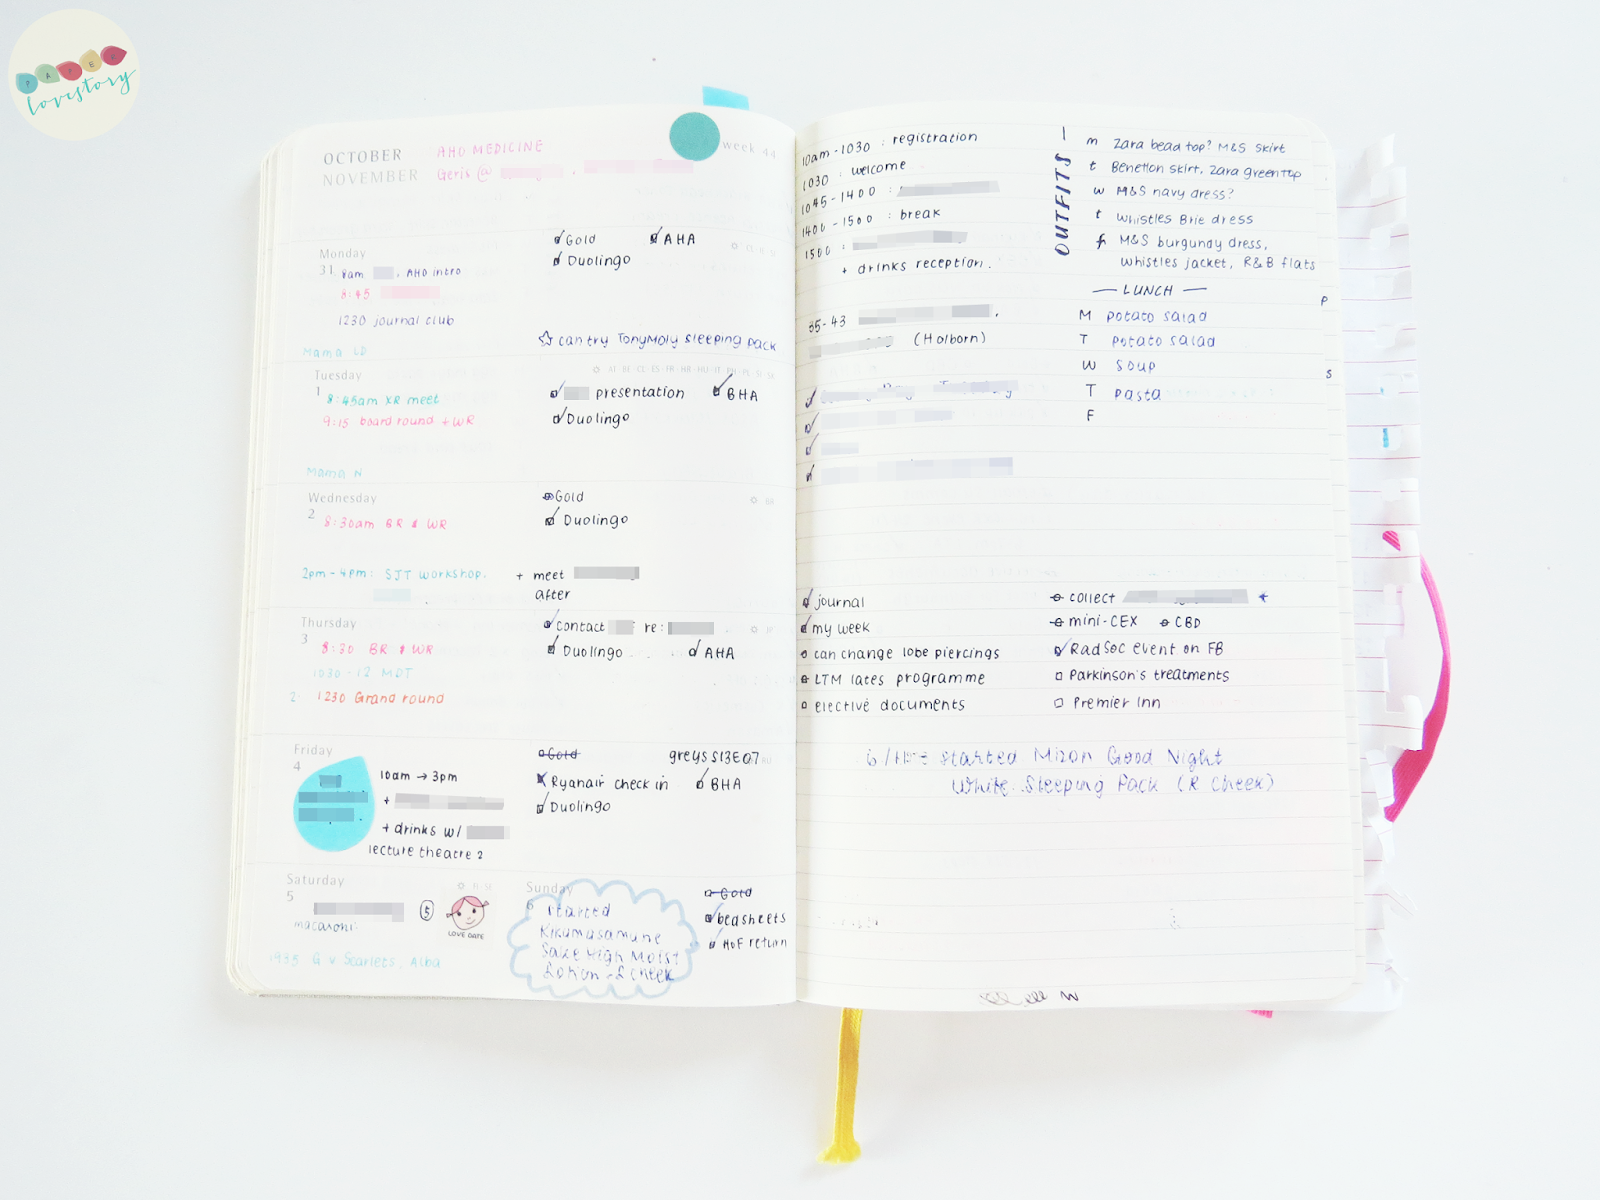 PAPER
lovestory
OCTOBER
NOVEMBER
AHO MEDICINE
Geris @
week 44
Monday
31
8am , AHO intro
8:45
1230 journal club
Gold
AHA
Duolingo
can try TonyMoly sleeping pack
Mama LD
Tuesday
1
8:45am XR meet
9:15 board round + WR
presentation
BHA
Duolingo
Mama N
Wednesday
2
8:30am BR & WR
Gold
Duolingo
2pm - 4pm: SJT workshop.
+ meet
after
Thursday
3
8:30 BR & WR
1030 - 12 MDT
2
1230 Grand round
contact re:
Duolingo
AHA
Friday
4
10am → 3pm
+
+ drinks w/
lecture theatre 2
Gold
greys S13E07
Ryanair check in
BHA
Duolingo
Saturday
5
5
LOVE DATE
macaroni
1935 G v Scarlets, Alba
Sunday
6
started
Kikumasamune
Sake High Moist
Lotion - L cheek
Gold
bedsheets
HoF return
10am - 1030 : registration
1030 : welcome
1045 - 1400 :
1400 - 1500 : break
1500 :
+ drinks reception.
35 - 43
(Holborn)
OUTFITS
m Zara bead top? M&S skirt
t Benetton skirt, Zara green top
w M&S navy dress?
t Whistles Brie dress
f M&S burgundy dress,
Whistles jacket, R&B flats
LUNCH
M potato salad
T potato salad
W soup
T pasta
F
P
S
journal
my week
can change lobe piercings
LTM lates programme
elective documents
collect
mini-CEX
CBD
RadSoc event on FB
Parkinson's treatments
Premier Inn
started Mizon Good Night
White Sleeping Pack (R cheek)